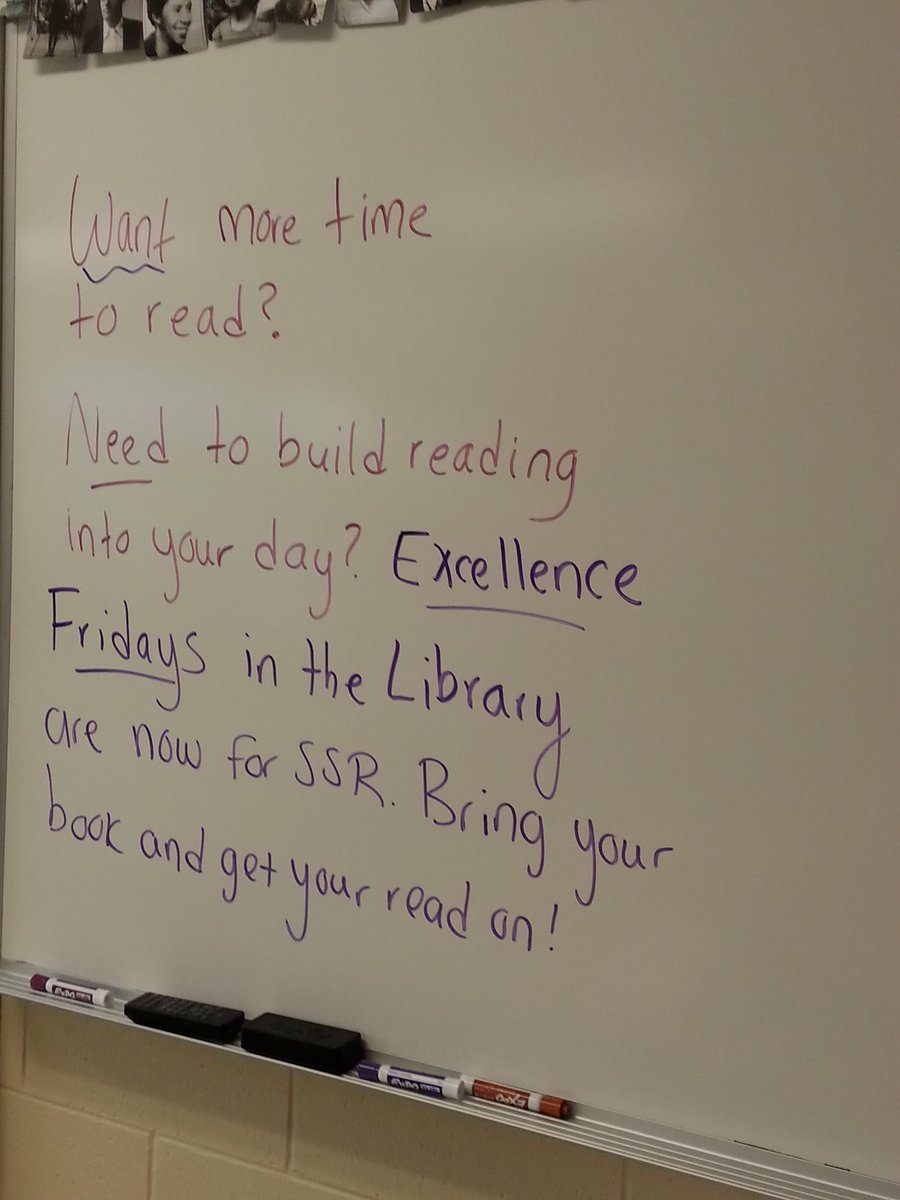 Want more time
to read?
Need to build reading
into your day? Excellence
Fridays in the Library
are now for SSR. Bring your
book and get your read on!
EXPO
EXPO
EXPO